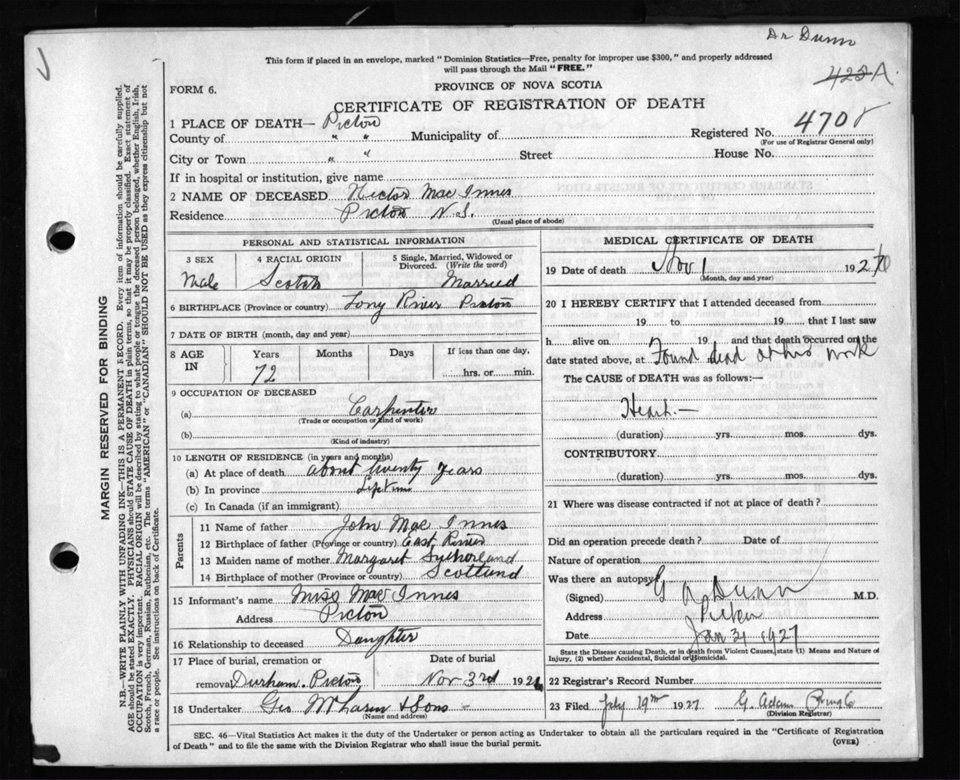 Dr Dunn
This form if placed in an envelope, marked "Dominion Statistics—Free, penalty for improper use $300," and properly addressed
will pass through the Mail "FREE."
428 A.
FORM 6.
PROVINCE OF NOVA SCOTIA
CERTIFICATE OF REGISTRATION OF DEATH
1 PLACE OF DEATH— Pictou
Registered No. 4708
County of " " Municipality of
(For use of Registrar General only)
City or Town " " Street House No.
If in hospital or institution, give name
2 NAME OF DECEASED Hector Mac Innis
Residence Pictou N.S.
(Usual place of abode)
PERSONAL AND STATISTICAL INFORMATION
3 SEX 4 RACIAL ORIGIN 5 Single, Married, Widowed or
Divorced. (Write the word)
Male Scotch Married
6 BIRTHPLACE (Province or country) Tony River Pictou
7 DATE OF BIRTH (month, day and year)
8 AGE IN Years Months Days If less than one day,
72 hrs. or min.
9 OCCUPATION OF DECEASED
(a) Carpenter
(Trade or occupation or kind of work)
(b)
(Kind of industry)
10 LENGTH OF RESIDENCE (in years and months)
(a) At place of death about twenty years
(b) In province
(c) In Canada (if an immigrant)
Parents
11 Name of father John Mac Innis
12 Birthplace of father (Province or country) East River
13 Maiden name of mother Margaret Sutherland
14 Birthplace of mother (Province or country) Scotland
15 Informant's name Miss Mac Innis
Address Pictou
16 Relationship to deceased Daughter
17 Place of burial, cremation or
removal Durham Pictou
Date of burial
Nov 3rd 192
18 Undertaker Geo McLaren & Sons
(Name and address)
MEDICAL CERTIFICATE OF DEATH
19 Date of death Nov 1 192
(Month, day and year)
20 I HEREBY CERTIFY that I attended deceased from
19 to 19 that I last saw
h alive on 19 and that death occurred on the
date stated above, at Found dead at his work
The CAUSE OF DEATH was as follows:—
Heart.—
(duration) yrs. mos. dys.
CONTRIBUTORY
(duration) yrs. mos. dys.
21 Where was disease contracted if not at place of death?
Did an operation precede death? Date of
Nature of operation
Was there an autopsy
(Signed) G A Dunn M.D.
Address Pictou
Date Jan 31 1927
State the Disease causing Death, or in death from Violent Causes, state (1) Means and Nature of
Injury, (2) whether Accidental, Suicidal or Homicidal.
22 Registrar's Record Number
23 Filed July 19th 1927 G. Adam
(Division Registrar)
SEC. 46—Vital Statistics Act makes it the duty of the Undertaker or person acting as Undertaker to obtain all the particulars required in the "Certificate of Registration
of Death" and to file the same with the Division Registrar who shall issue the burial permit.
(OVER)
MARGIN RESERVED FOR BINDING
N.B.—WRITE PLAINLY WITH UNFADING INK—THIS IS A PERMANENT RECORD. Every item of information should be carefully supplied.
AGE should be stated EXACTLY. PHYSICIANS should STATE CAUSE OF DEATH in plain terms, so that it may be properly classified. Exact statement of
OCCUPATION is very important. RACIAL ORIGIN will be described by stating to what people or tongue the deceased person belonged, whether English, Irish,
Scotch, French, German, Russian, Ruthenian, etc. The terms "AMERICAN" or "CANADIAN" SHOULD NOT BE USED as they express citizenship but not
a race or people. See instructions on back of Certificate.